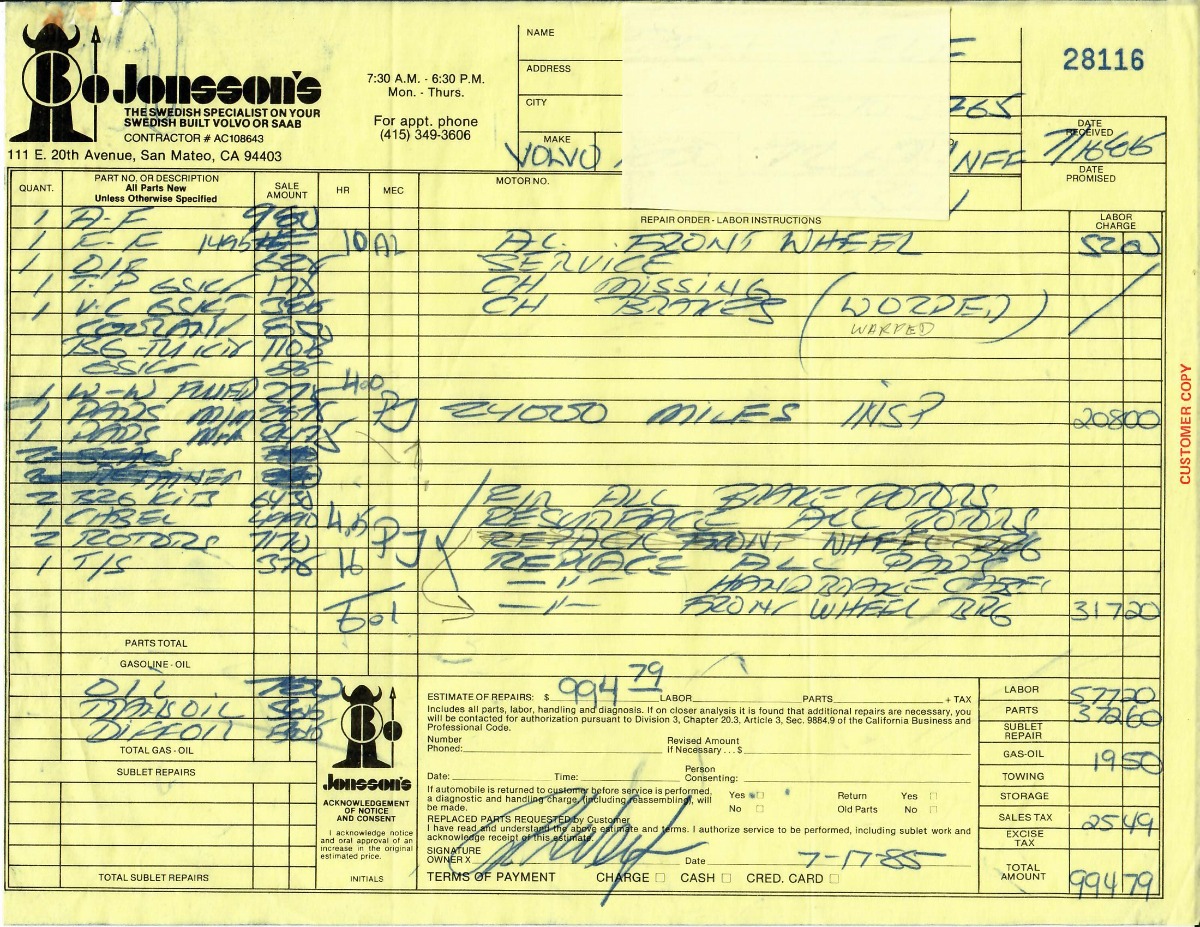 Bo Jonsson's
THE SWEDISH SPECIALIST ON YOUR
SWEDISH BUILT VOLVO OR SAAB
CONTRACTOR # AC108643
111 E. 20th Avenue, San Mateo, CA 94403
7:30 A.M. - 6:30 P.M.
Mon. - Thurs.
For appt. phone
(415) 349-3606
NAME
ADDRESS
CITY
765
MAKE
VOLVO
MOTOR NO.
28116
DATE RECEIVED
DATE PROMISED
QUANT. PART NO. OR DESCRIPTION SALE AMOUNT HR MEC
All Parts New
Unless Otherwise Specified
REPAIR ORDER - LABOR INSTRUCTIONS LABOR CHARGE
1 A-F 980
1 10 AL AL. FRONT WHEEL 5200
1 SERVICE
1 T-P GSKT CH MISSING
1 V.C GSKT CH BRAKES (WORPED)
COOLANT WARPED
1 4.00
1 PADS PJ 24000 MILES INSP 20800
1 PADS
2 SEALS
2 KITS R/R ALL BRAKE ROTORS
1 CABEL 4990 4.5 RESURFACE ALL ROTORS
2 ROTORS 7170 PJ REPACK FRONT WHEEL BRG
1 T/S 376 16 REPLACE ALL PADS
—"— HANDBRAKE CABEL
—"— FRONT WHEEL BRG 31720
PARTS TOTAL
GASOLINE - OIL
OIL
TRANSOIL
DIFFOIL
TOTAL GAS - OIL
SUBLET REPAIRS
TOTAL SUBLET REPAIRS
Bo
Jonsson's
ACKNOWLEDGEMENT
OF NOTICE
AND CONSENT
I acknowledge notice
and oral approval of an
increase in the original
estimated price.
INITIALS
ESTIMATE OF REPAIRS: $ 994 79 LABOR PARTS + TAX
Includes all parts, labor, handling and diagnosis. If on closer analysis it is found that additional repairs are necessary, you
will be contacted for authorization pursuant to Division 3, Chapter 20.3, Article 3, Sec. 9884.9 of the California Business and
Professional Code.
Number Phoned: Revised Amount If Necessary . . . $
Date: Time: Person Consenting:
If automobile is returned to customer before service is performed,
a diagnostic and handling charge, (including reassembling), will
be made.
Yes □ No □ Return Old Parts Yes □ No □
REPLACED PARTS REQUESTED by Customer
I have read and understand the above estimate and terms. I authorize service to be performed, including sublet work and
acknowledge receipt of this estimate.
SIGNATURE
OWNER X Date 7-17-85
TERMS OF PAYMENT CHARGE □ CASH □ CRED. CARD □
LABOR 57720
PARTS 37260
SUBLET REPAIR
GAS-OIL 1950
TOWING
STORAGE
SALES TAX 2549
EXCISE TAX
TOTAL AMOUNT 99479
CUSTOMER COPY